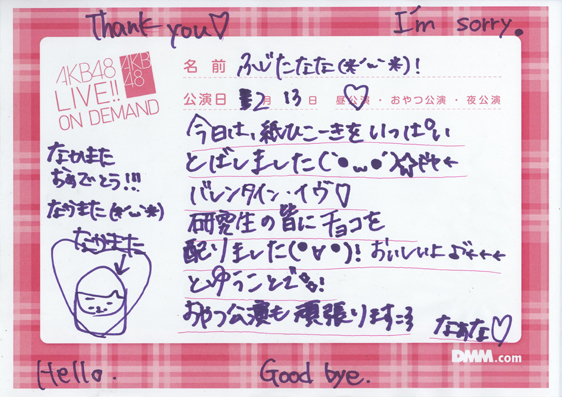 Thank you♡
I'm sorry.
AKB48
LIVE!!
ON DEMAND
AKB
48
名前 ふじたなな(*´ω`*)!
公演日 2月13日 昼公演・おやつ公演・夜公演
今日は、紙ひこーきをいっぱい
とばしました(`・ω・´)☆
バレンタイン・イヴ♡
研究生の皆にチョコを
配りました(°∀°)! おいしいよ
とゆうことで!
おやつ公演も頑張ります
なぁな♡
なかまた
おめでとう!!!
なかまた(*´ω`*)
なかまた
Hello.
Good bye.
DMM.com